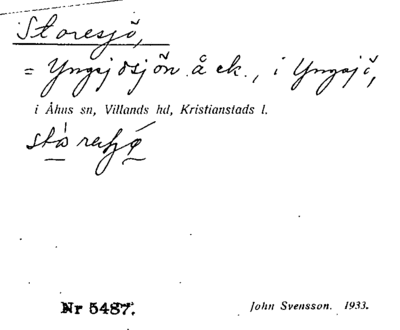 Storesjö,
= Yngsjösjön å ek., i Yngsjö,
i Åhus sn, Villands hd, Kristianstads l.
Nr 5487.
John Svensson. 1933.